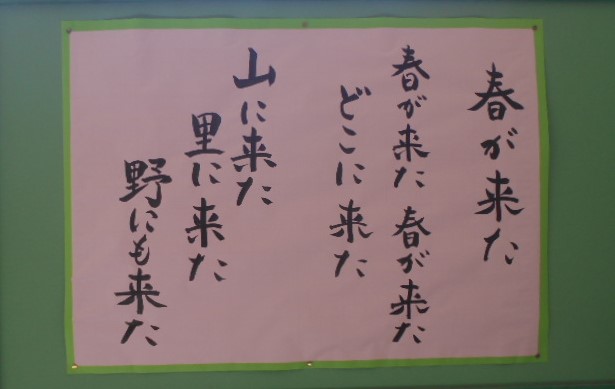 春が来た
春が来た 春が来た
どこに来た
山に来た
里に来た
野にも来た